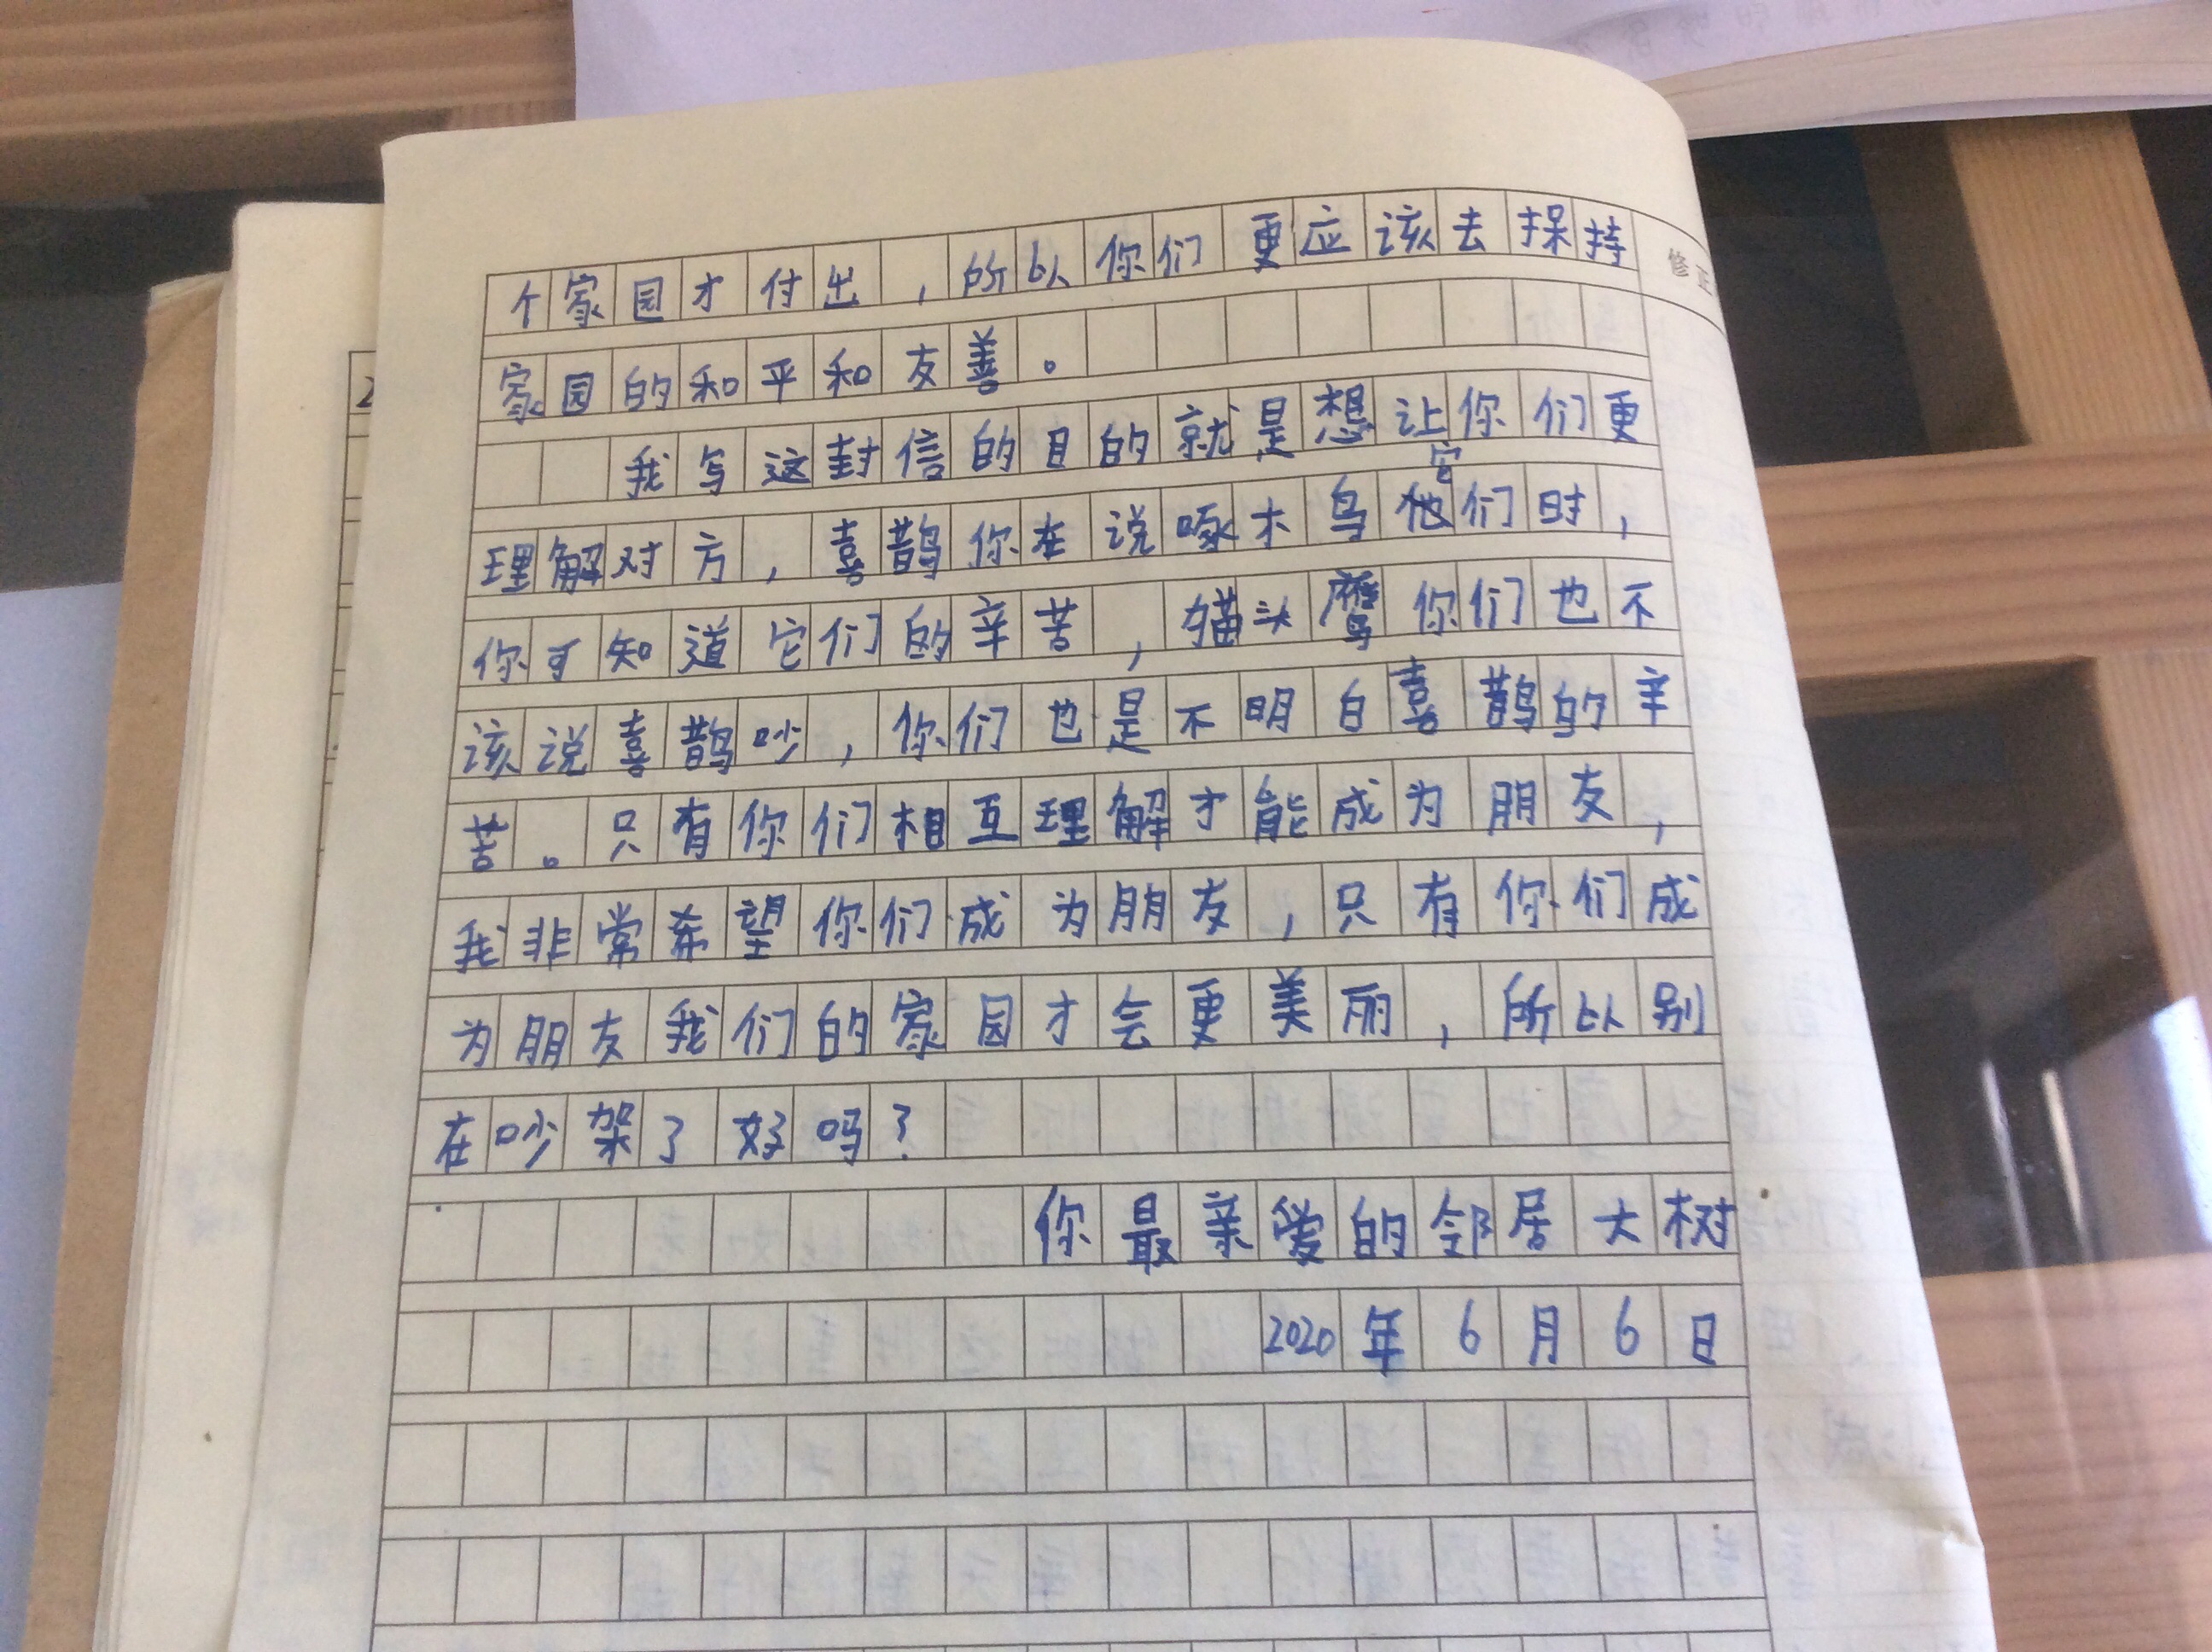 个家园才付出，所以你们更应该去保持
修正
家园的和平和友善。
我写这封信的目的就是想让你们更
理解对方，喜鹊你在说啄木鸟它们时，
你可知道它们的辛苦，猫头鹰你们也不
该说喜鹊吵，你们也是不明白喜鹊的辛
苦。只有你们相互理解才能成为朋友，
我非常希望你们成为朋友，只有你们成
为朋友我们的家园才会更美丽，所以别
在吵架了好吗？
你最亲爱的邻居大树
2020年6月6日